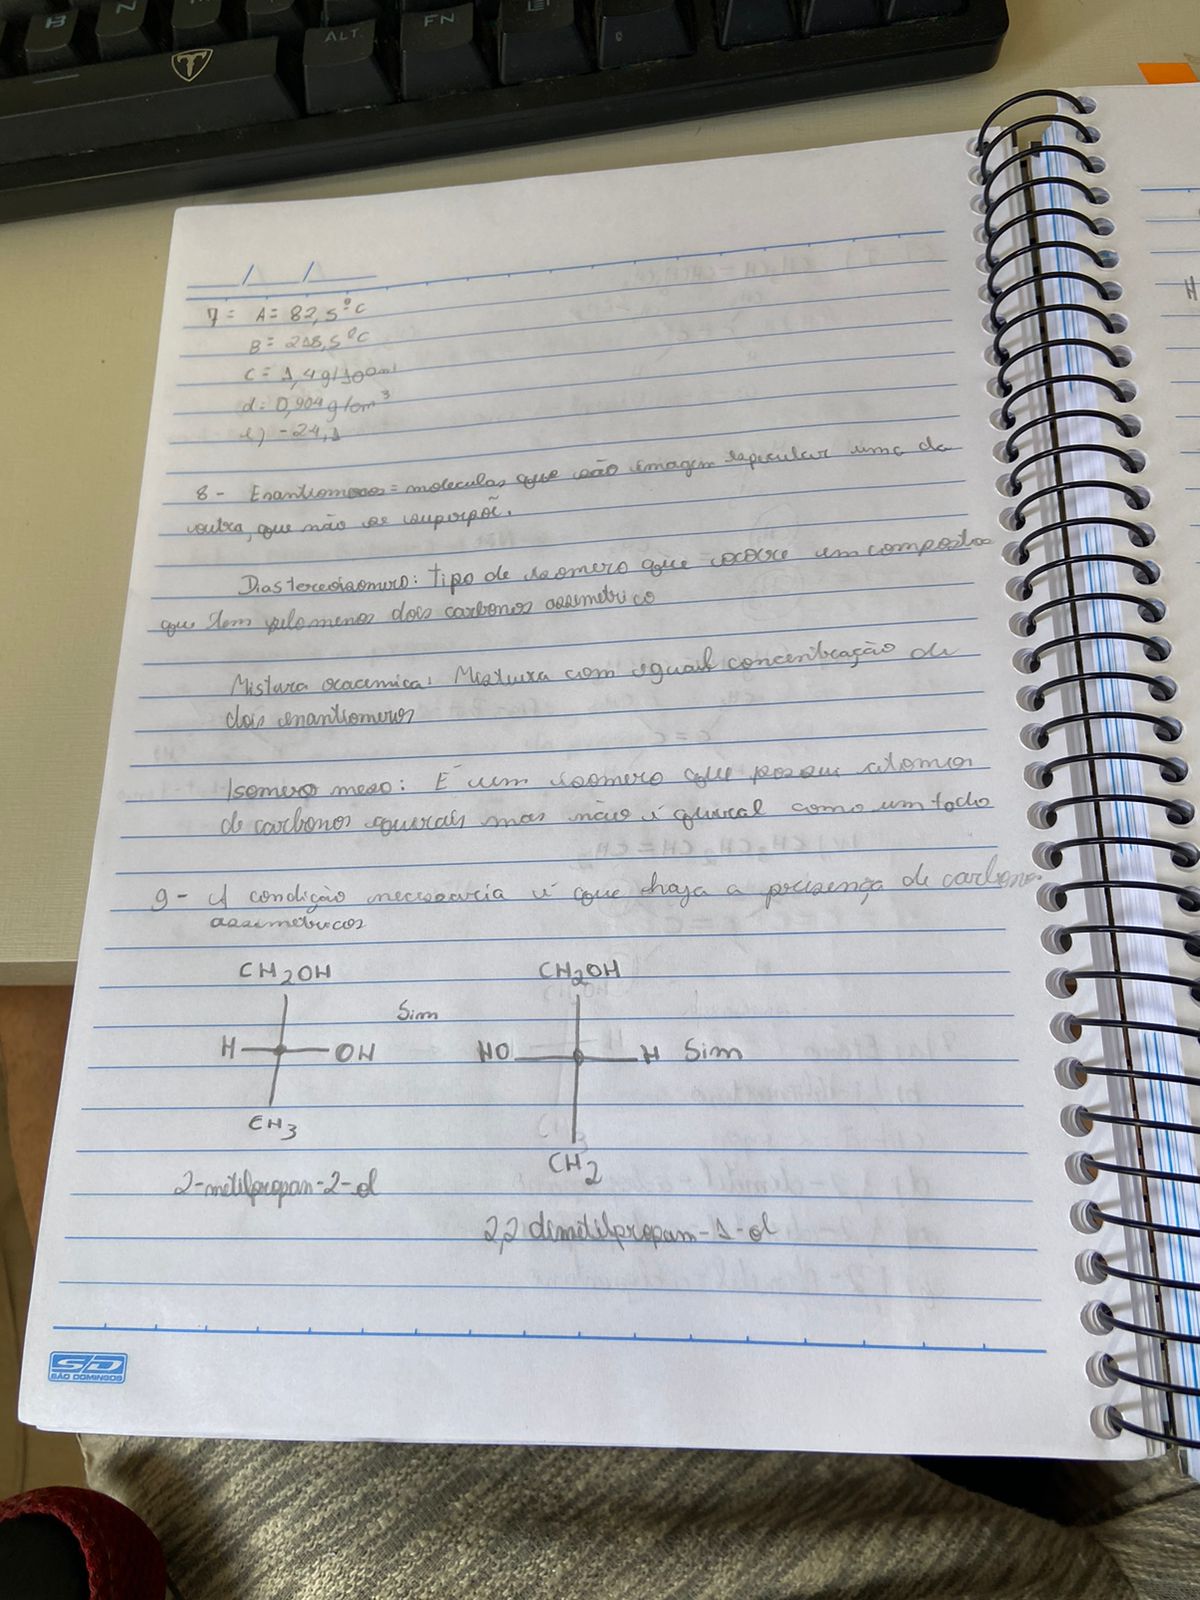 B N
ALT FN
/ /
7 = A = 82,5°C
B = 218,5°C
C = 1,4g/100ml
d = 0,904g/cm³
e) -24,1
8 - Enantiomeros = moleculas que são imagem especular uma da
outra, que não se superpõe.
Diastereoisomero: Tipo de isomero que ocorre em compostos
que tem pelo menos dois carbonos assimetrico
Mistura racemica: Mistura com igual concentração de
dois enantiomeros
Isomero meso: É um isomero que possui atomos
de carbonos quirais mas não é quiral como um todo
9 - A condição necessaria é que haja a presença de carbonos
assimetricos
CH2OH CH2OH
Sim
H OH HO H Sim
CH3
CH2
2-metilpropan-2-ol
2,2 dimetilpropan-1-ol
SD
SÃO DOMINGOS